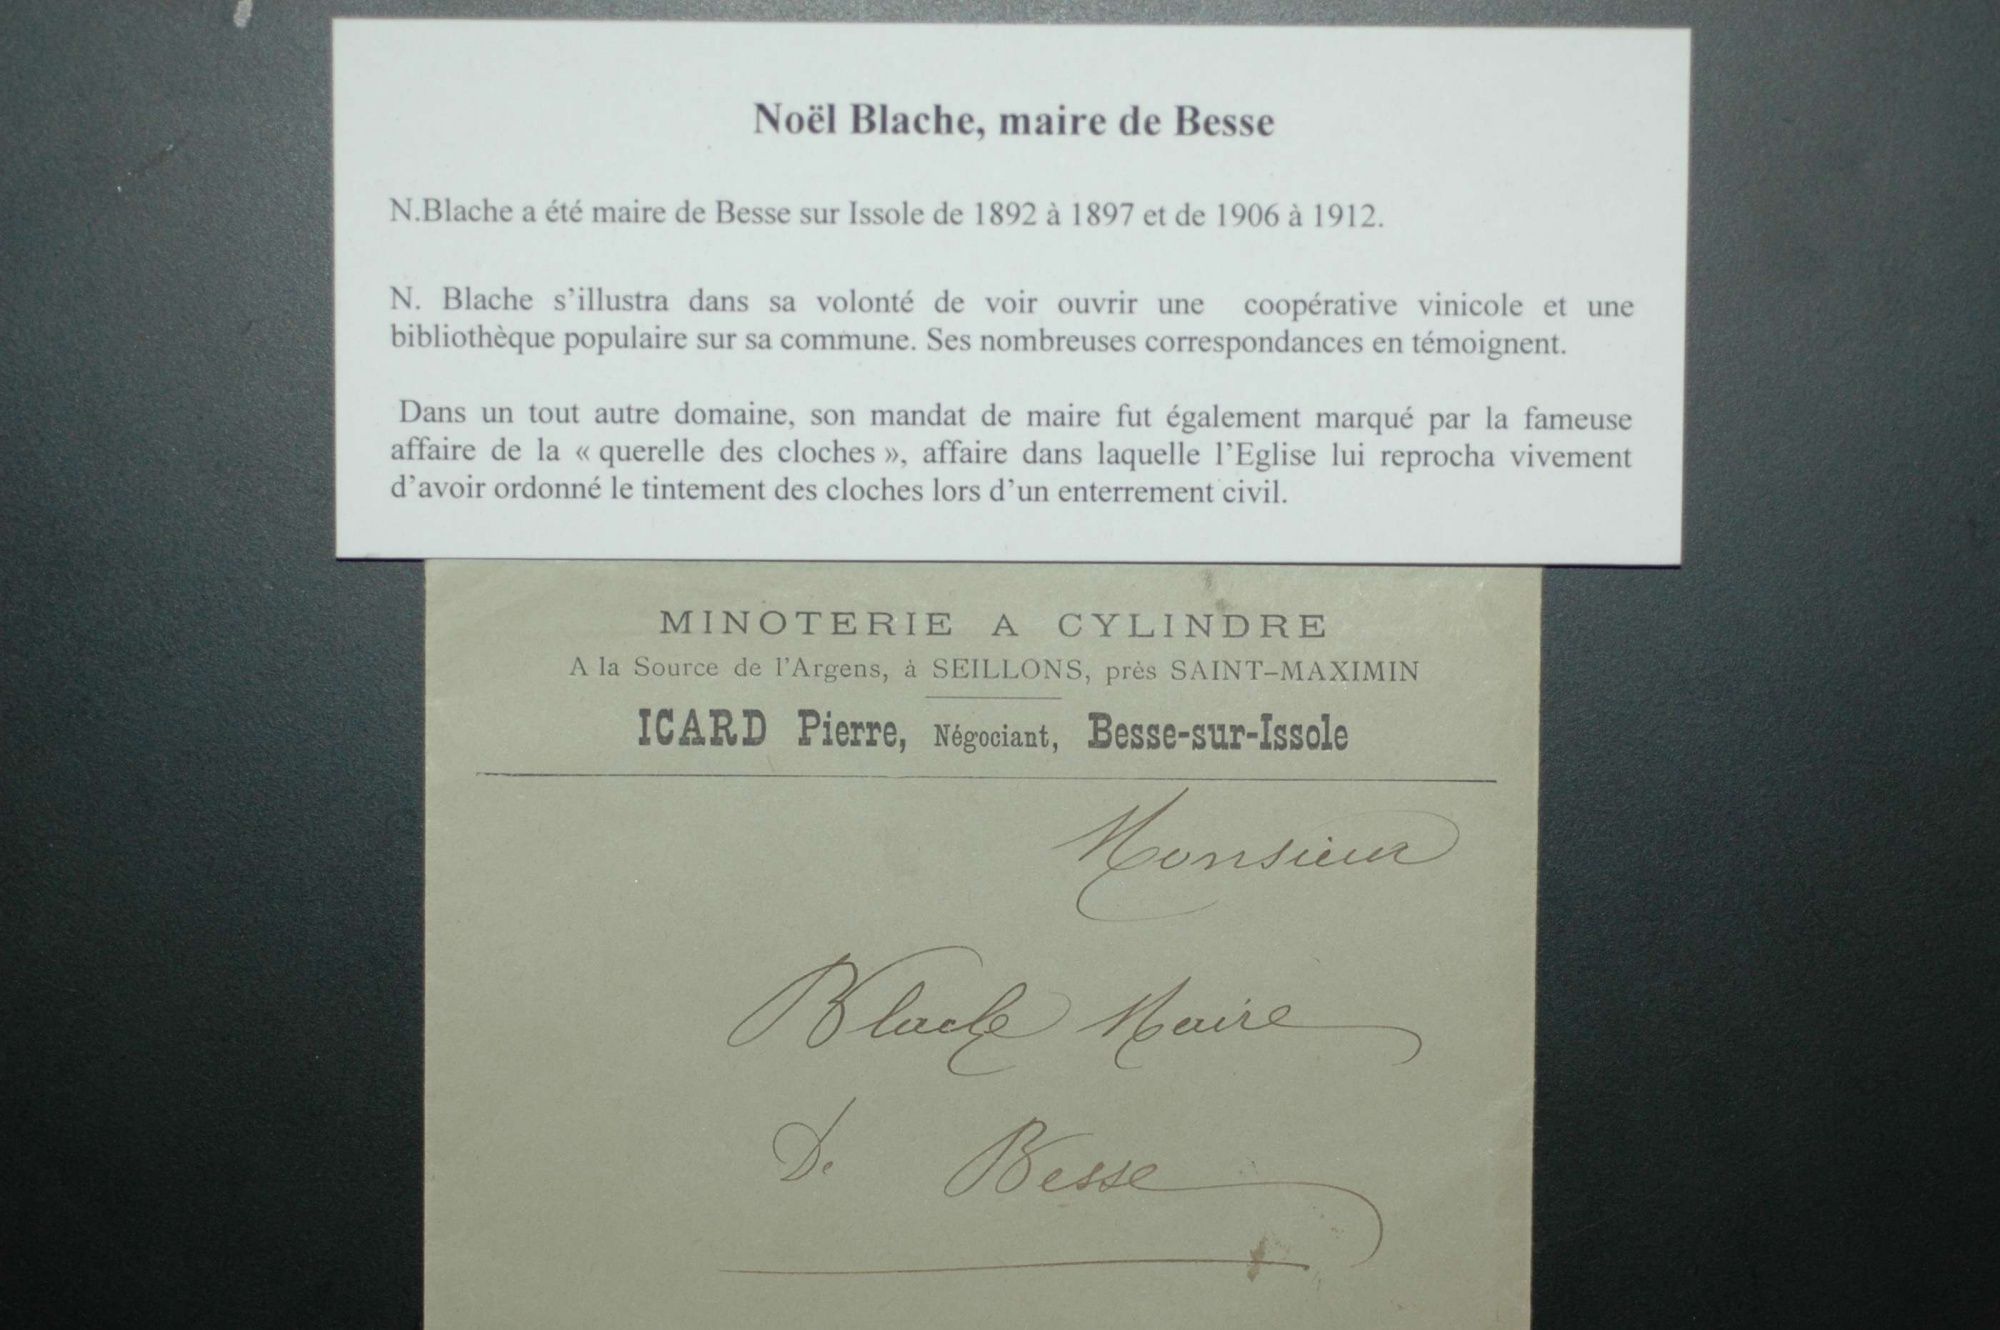 Noël Blache, maire de Besse
N.Blache a été maire de Besse sur Issole de 1892 à 1897 et de 1906 à 1912.
N. Blache s'illustra dans sa volonté de voir ouvrir une coopérative vinicole et une
bibliothèque populaire sur sa commune. Ses nombreuses correspondances en témoignent.
Dans un tout autre domaine, son mandat de maire fut également marqué par la fameuse
affaire de la « querelle des cloches », affaire dans laquelle l'Eglise lui reprocha vivement
d'avoir ordonné le tintement des cloches lors d'un enterrement civil.
MINOTERIE A CYLINDRE
A la Source de l'Argens, à SEILLONS, près SAINT-MAXIMIN
ICARD Pierre, Négociant, Besse-sur-Issole
Monsieur
Blache Maire
De Besse